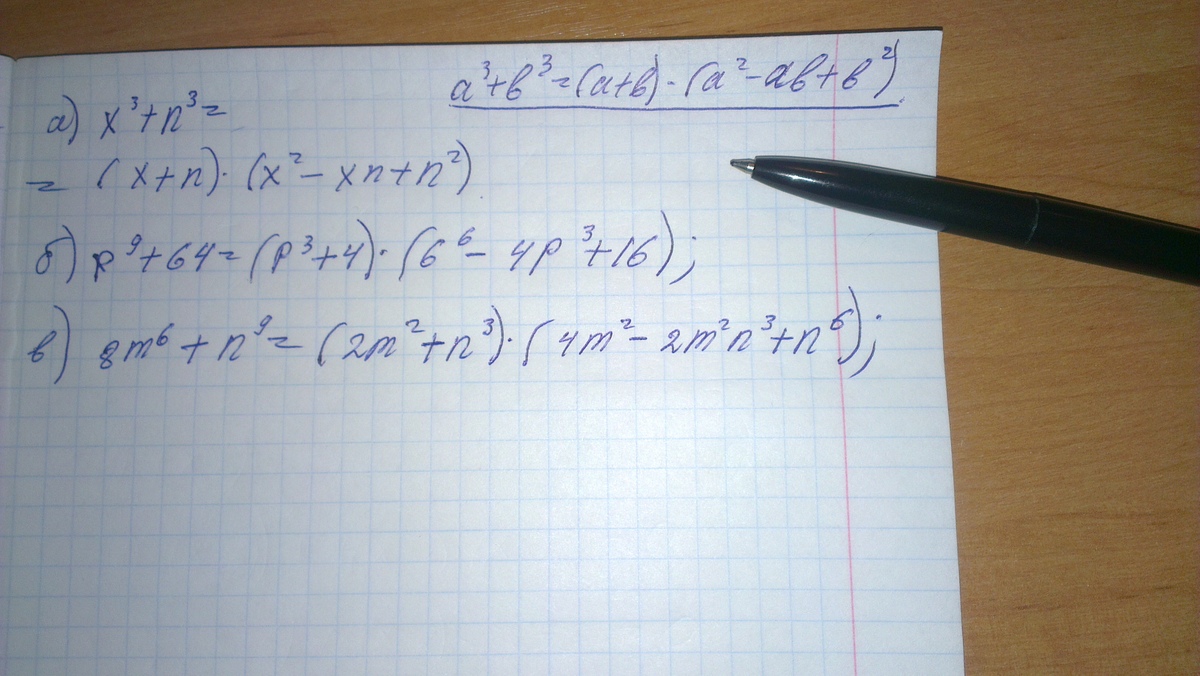 a³+в³=(a+в)·(a²-aв+в²)
а) x³+n³=
= (x+n)·(x²-xn+n²)
б) p⁹+64=(p³+4)·(6⁶-4p³+16);
в) 8m⁶+n⁹=(2m²+n³)·(4m²-2m²n³+n⁶);